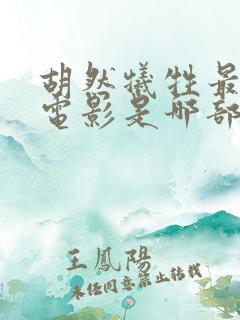 胡然犧牲最
電影是哪部
王鳳陽
未经同意禁止转载